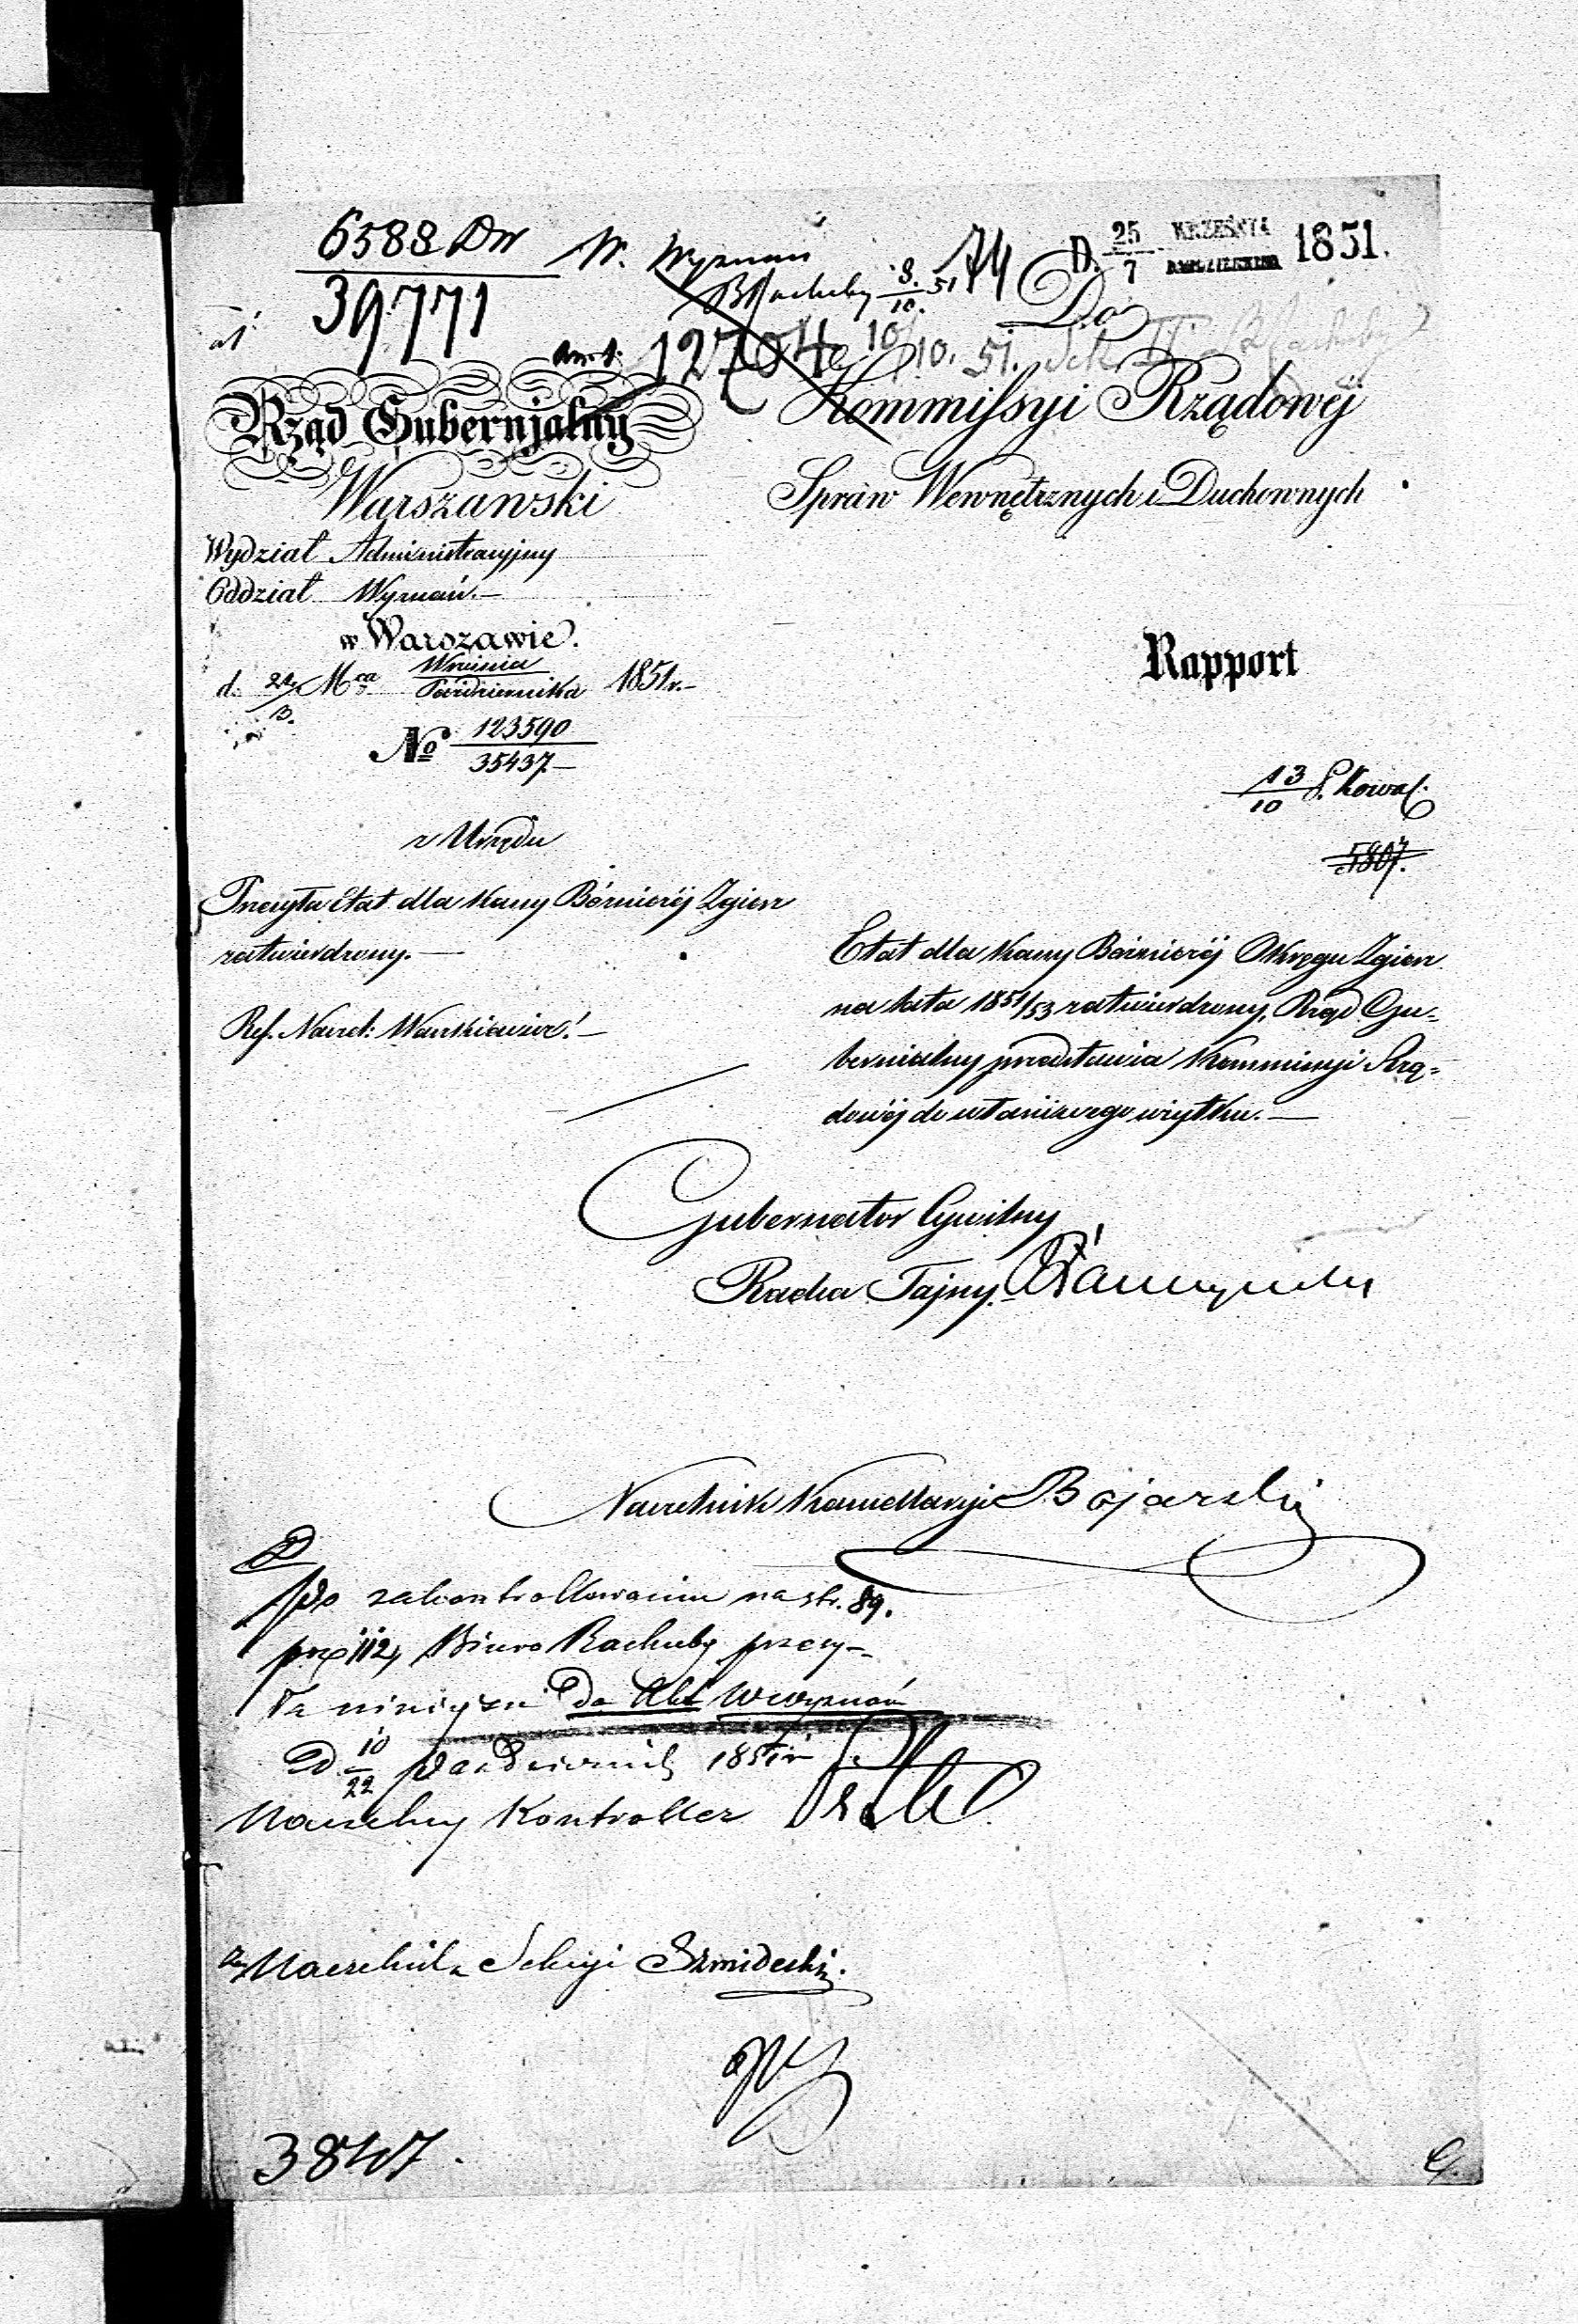 6588 Dw
39771
W. Wyznań
B Rachuby 8/10 51
74
D. 25/7 WRZEŚNIA PAŹDZIERNIKA 1851.
Do
12704
10/10. 51. Sek. II. B Rachuby
Kommissyi Rządowéj
Spraw Wewnętrznych i Duchownych
Rząd Gubernjalny
Warszawski
Wydział Administracyjny
Oddział Wyznań.—
w Warszawie.
d. Mca Września Października 1851 r.—
No 123590
35437.—
z Urzędu
Rapport
13/10
5807.
Przesyła Etat dla Kassy Bóżniczéj Zgierz
zatwierdzony.—
Ref. Naczel:
Etat dla Kassy Bóżniczéj Okręgu Zgierz
na lata 1851/53 zatwierdzony, Rząd Gu=
bernialny przedstawia Kommissyi Rzą=
dowéj do właściwego użytku.—
Gubernator Cywilny
Radca Tajny.
Naczelnik Kancellaryi Bojarski
Po zakontrollowaniu na str. 89.
poz 112, Biuro Rachuby przesy-
ła niniejsze Do Akt W Wyznań
D 10/22 Października 1851 r
Naczelny Kontroller
z Naczelnika Sekcyi Szmidecki.
3847.